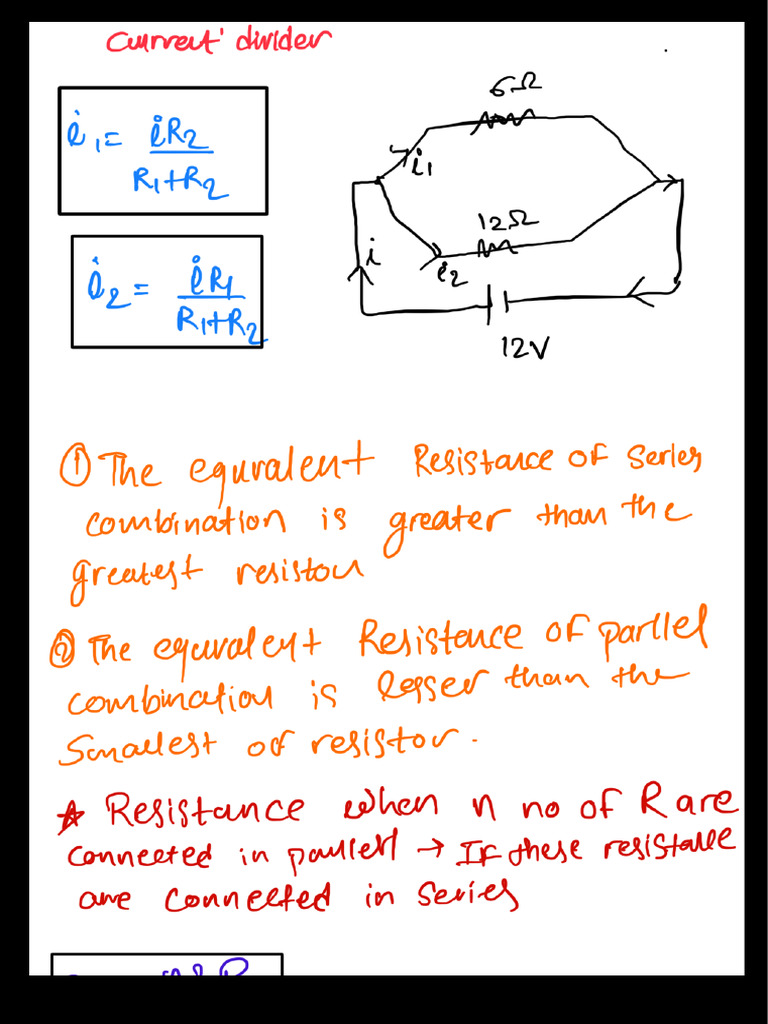 Current divider
6Ω
i₁ = iR₂
R₁+R₂
i₁
12Ω
i
i₂
i₂ = iR₁
R₁+R₂
12V
① The equivalent Resistance of series
combination is greater than the
greatest resistor
② The equivalent Resistance of parllel
combination is lesser than the
smallest of resistor.
★ Resistance when n no of R are
connected in parllel → If these resistance
are connected in series